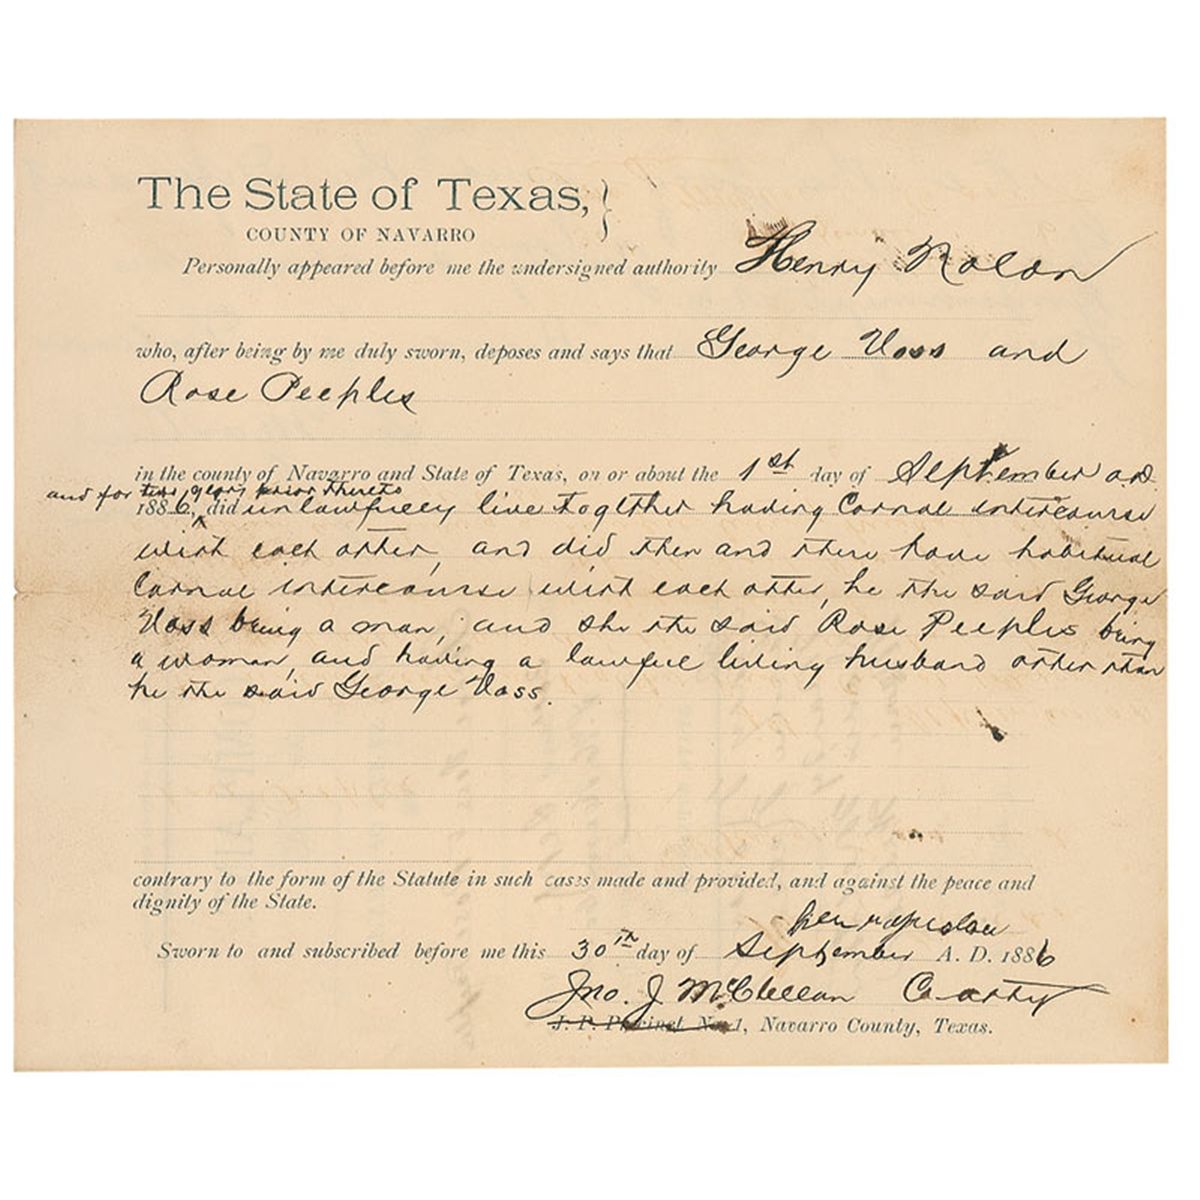 The State of Texas,
COUNTY OF NAVARRO
Personally appeared before me the undersigned authority Henry Nolan
who, after being by me duly sworn, deposes and says that George Voss and
Rose Peeples
in the county of Navarro and State of Texas, on or about the 1st day of September A.D.
and for two years prior thereto
1886, did unlawfully live together having Carnal intercourse
with each other, and did then and there have habitual
Carnal intercourse with each other, he the said George
Voss being a man, and she the said Rose Peeples being
a woman, and having a lawful living husband other than
he the said George Voss.
contrary to the form of the Statute in such cases made and provided, and against the peace and
dignity of the State.
Sworn to and subscribed before me this 30th day of September A. D. 1886
Jno. J. McClellan Co atty
J. P. Precinct No. 1, Navarro County, Texas.